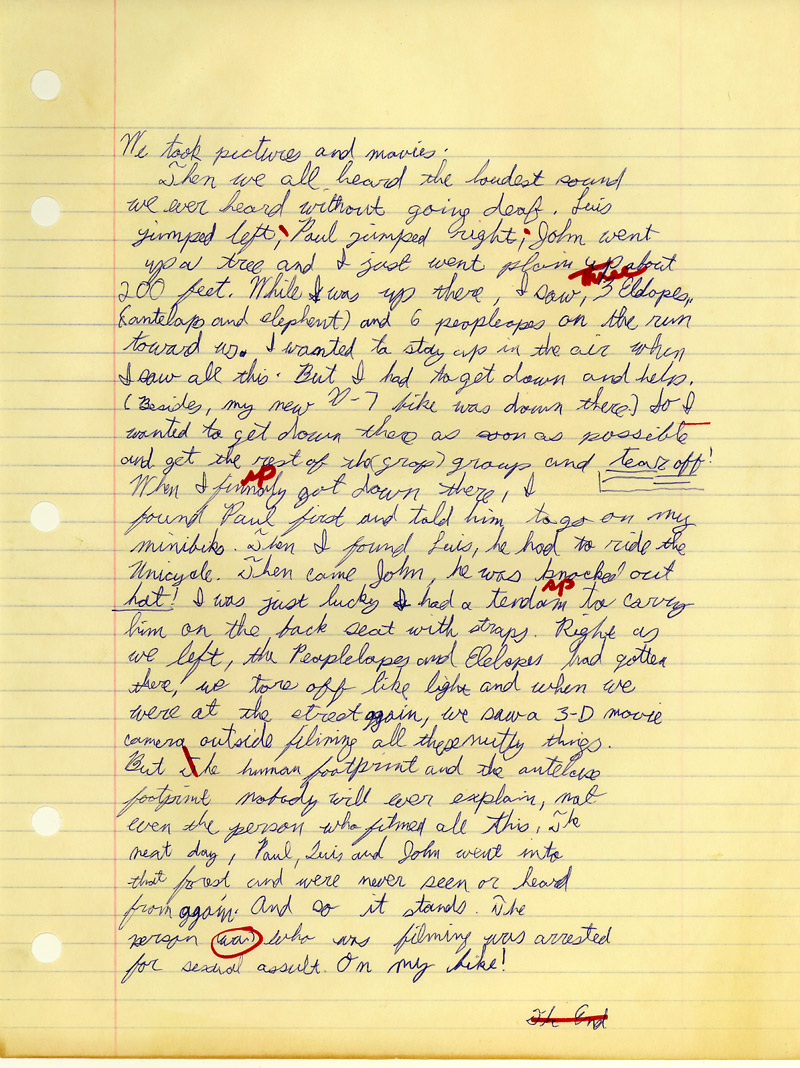 We took pictures and movies.
Then we all heard the loudest sound
we ever heard without going deaf. Luis
jumped left; Paul jumped right; John went
up a tree and I just went plain up about
three
200 feet. While I was up there, I saw, 3 Eldopes,
(antelap and elephent) and 6 peopleopes on the run
toward us. I wanted to stay up in the air when
I saw all this. But I had to get down and help.
(Besides, my new V-7 bike was down there.) So I
wanted to get down there as soon as possible
and get the rest of the (grop) group and tear off!
sp
When I finnaly got down there, I
found Paul first and told him to go on my
minibike. Then I found Luis, he had to ride the
Unicycle. Then came John, he was knocked out
sp
hat! I was just lucky I had a tendam to carry
him on the back seat with straps. Right as
we left, the Peoplelopes and Elelopes had gotten
there, we tore off like light and when we
were at the street again, we saw a 3-D movie
camera outside filming all these nutty things.
But The human footprint and the antelope
footprint nobody will ever explain, not
even the person who filmed all this. The
next day, Paul, Luis and John went into
that forest and were never seen or heard
from again. And so it stands. The
person was who was filming was arrested
for sexual assult. On my bike!
The End